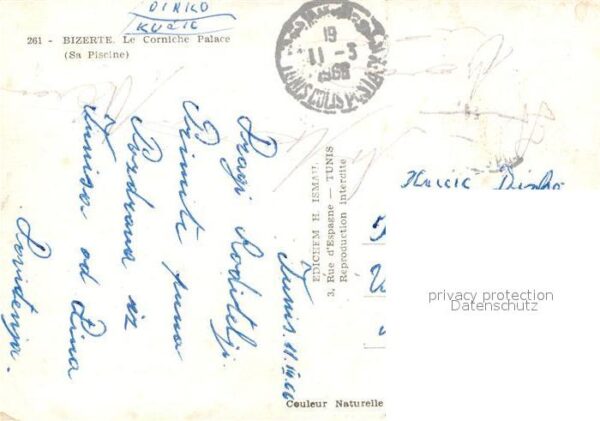 DINKO
KUČIĆ
261 - BIZERTE. Le Corniche Palace
(Sa Piscine)
19
11 -3
1966
TUNIS COLIS POSTAUX
Tunis. 11.III.66
Dragi Roditelji.
Primite puno
Pozdrava iz
Tunisa od Dina
Dovidenja.
EDICHEM H. ISMAIL
3, Rue d'Espagne — TUNIS
Reproduction interdite
Couleur Naturelle
privacy protection
Datenschutz